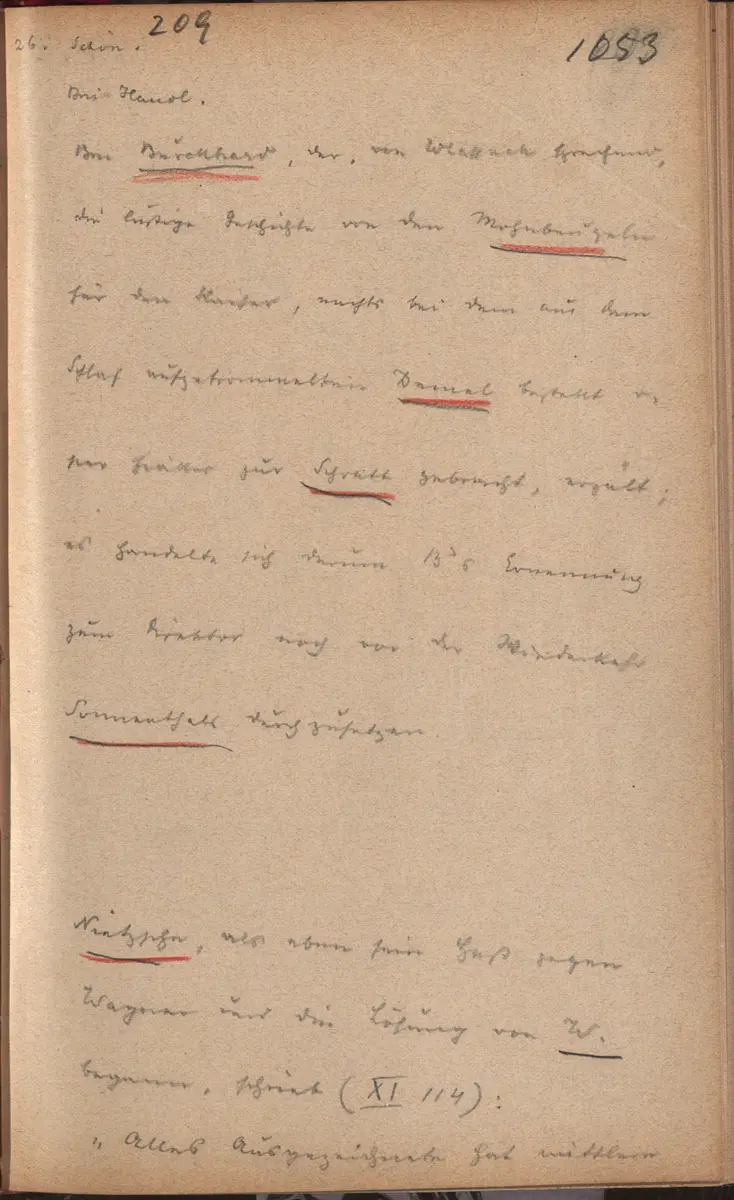 209
1053
26. Schön.
Bei Handl.
Bei Burckhard, der, von Wlassack sprechend,
die lustige Geschichte von den Mohnbeugeln
für den Kaiser, nachts bei dem aus dem
Schlaf aufgetrommelten Demel bestellt u.
per Fiaker zur Schratt gebracht, erzält;
es handelte sich darum B's Ernennung
zum Direktor noch vor der Wiederkehr
Sonnenthals durchzusetzen.
Nietzsche, als eben sein Haß gegen
Wagner und die Lösung von W.
begann, schrieb (XI 114):
"Alles Ausgezeichnete hat mittlere